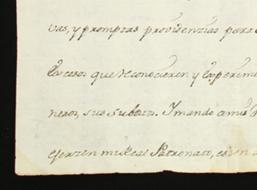 vas, y promptas providencias para
los casos que se conocieren y experime
neros, sus subdit. Y mando a mis
ejerzen mi Real Patronato, es